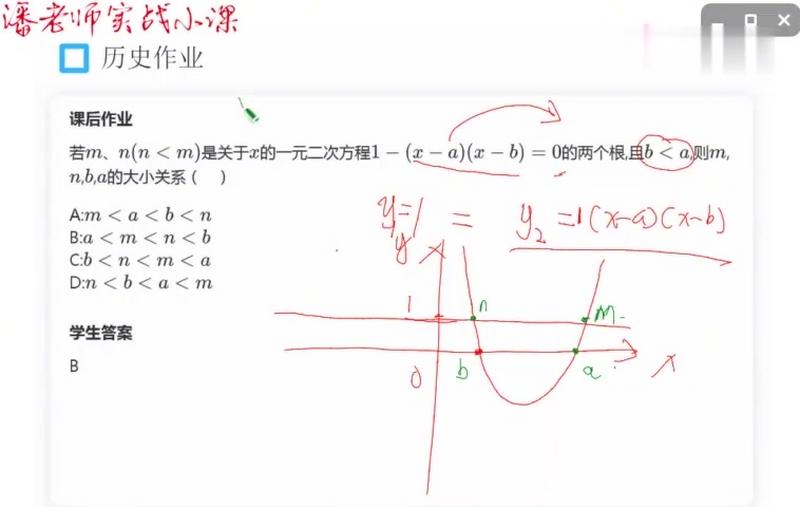 潘老师实战小课
历史作业
课后作业
若m、n(n < m)是关于x的一元二次方程1 − (x − a)(x − b) = 0的两个根,且b < a,则m,
n,b,a的大小关系（ ）
A:m < a < b < n
B:a < m < n < b
C:b < n < m < a
D:n < b < a < m
学生答案
B
y=1 = y₂ =1(x-a)(x-b)
y
1 n m
0 b a x